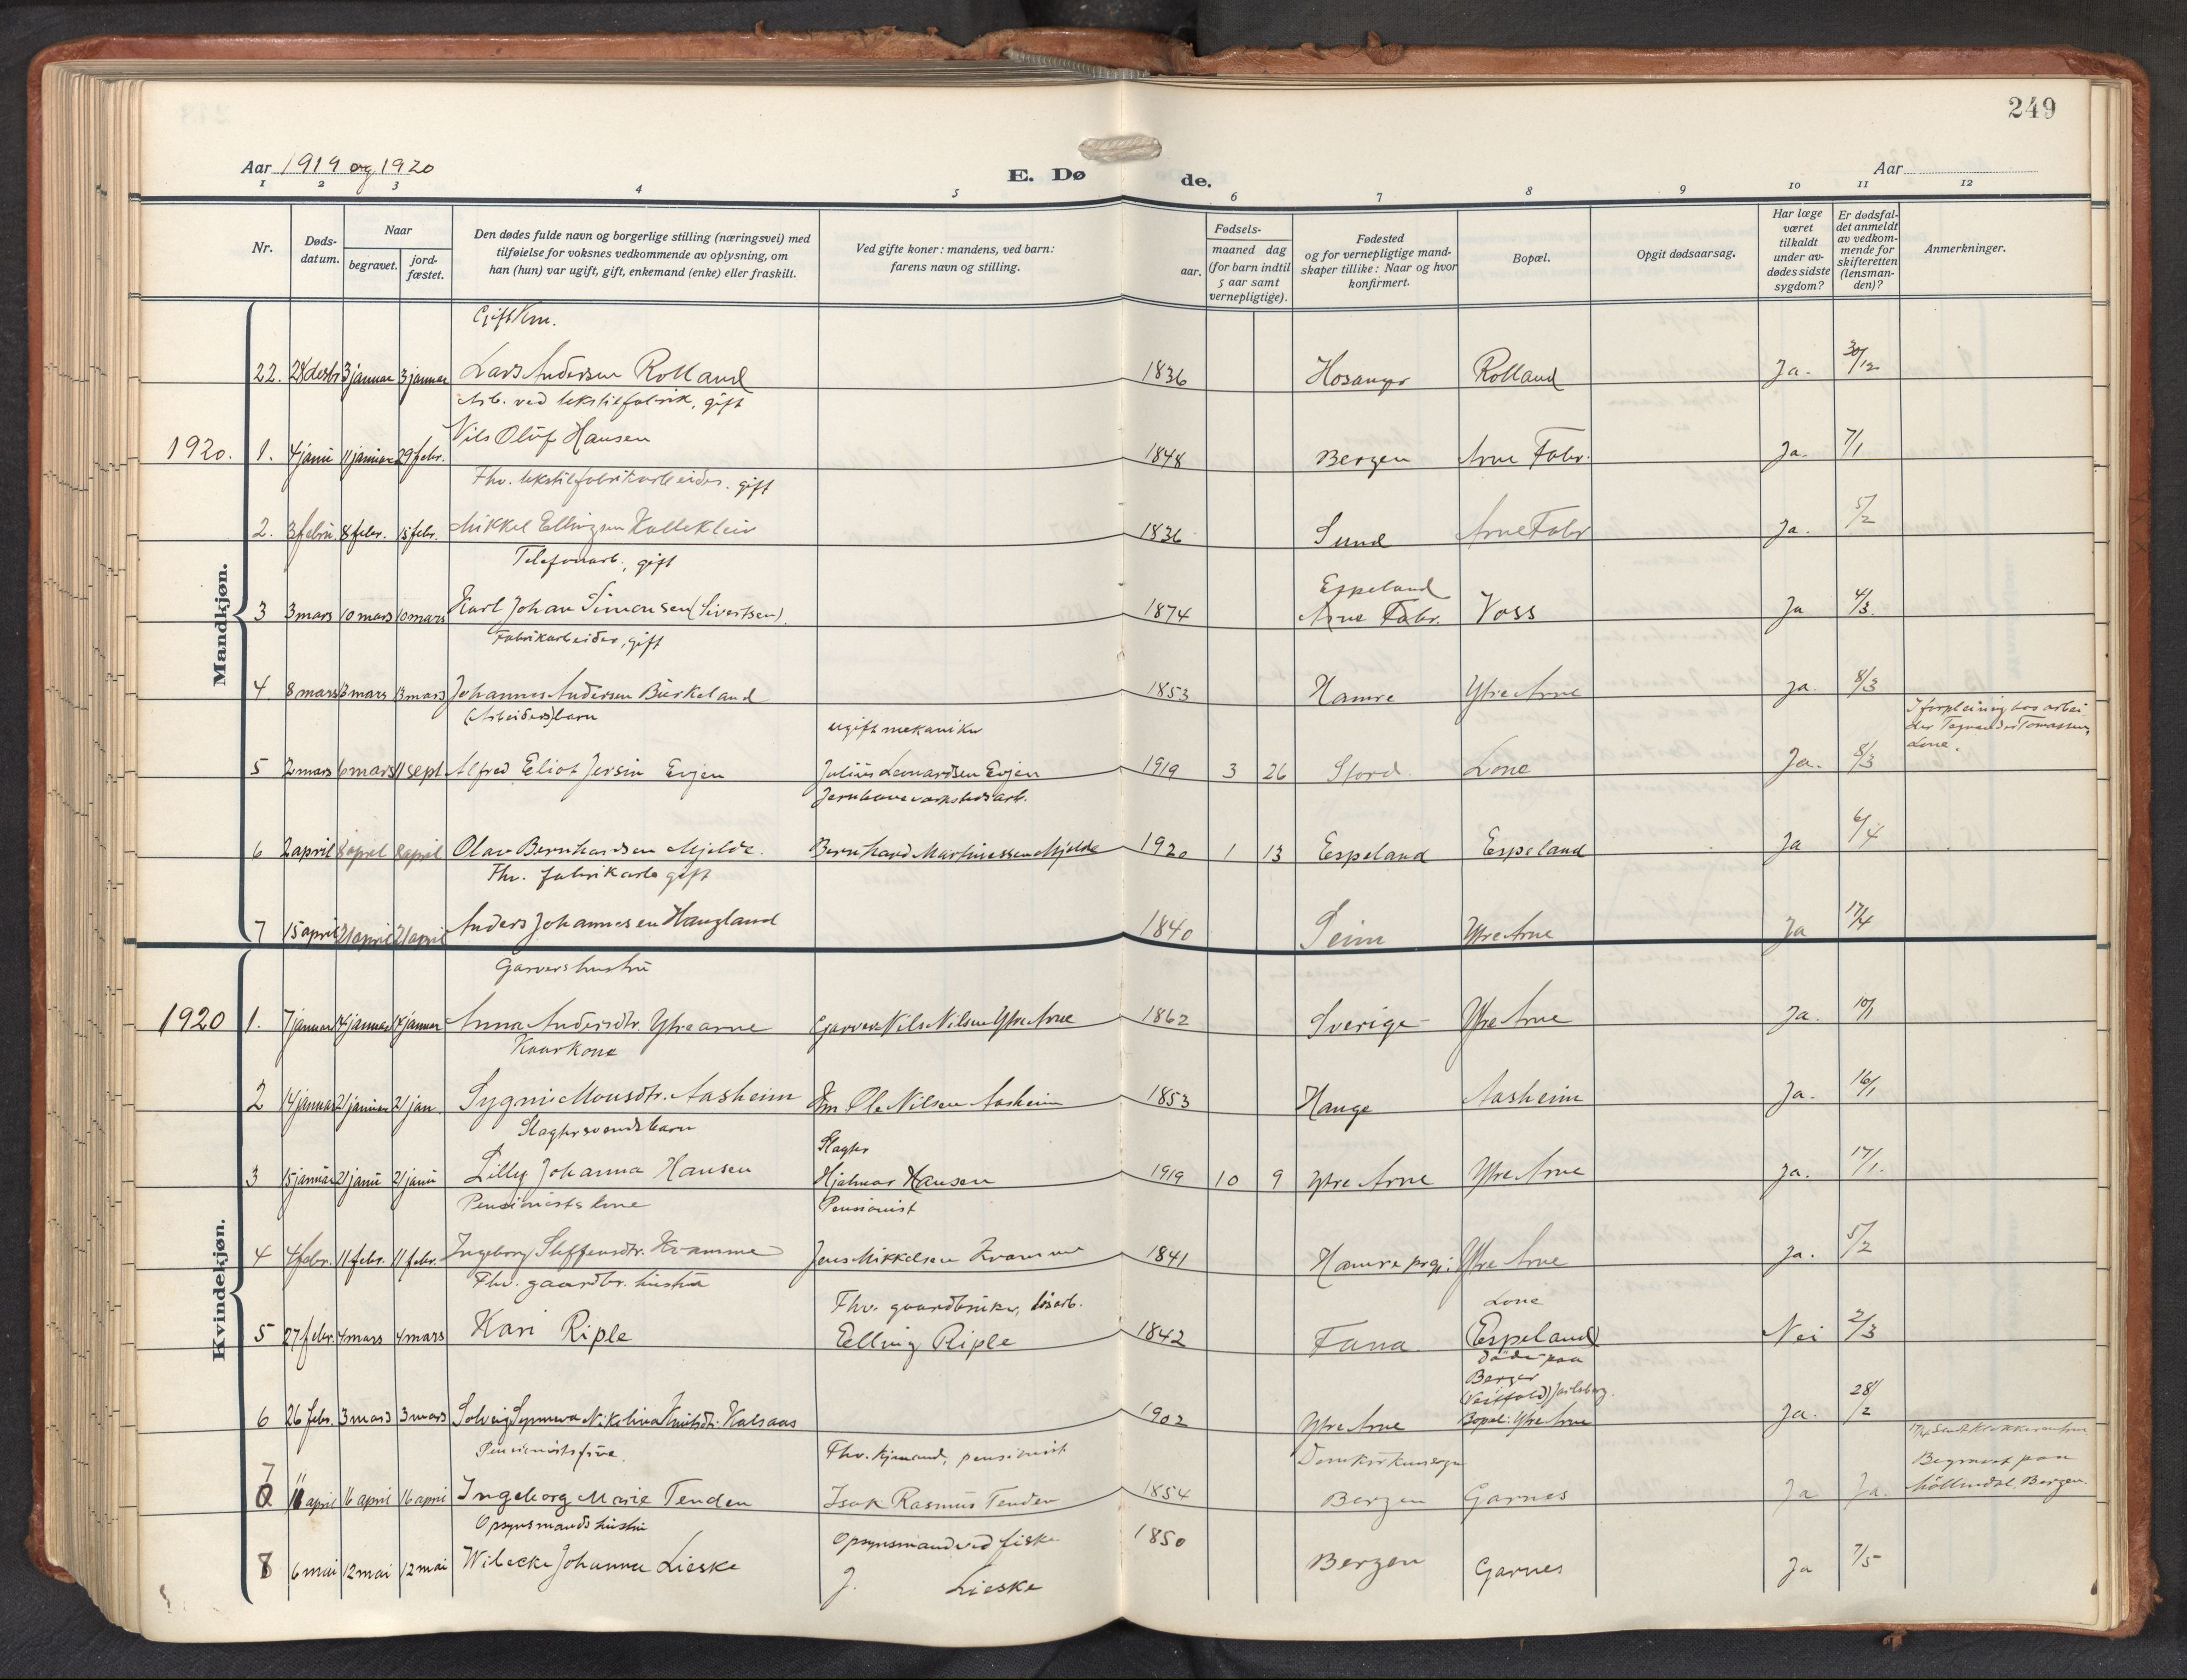 249
Aar 1919 og 1920
E. Dø de.
Aar
1 2 3 4 5 6 7 8 9 10 11 12
Nr.
Døds-
datum.
Naar
begravet.
jord-
fæstet.
Den dødes fulde navn og borgerlige stilling (næringsvei) med
tilføielse for voksnes vedkommende av oplysning, om
han (hun) var ugift, gift, enkemand (enke) eller fraskilt.
Ved gifte koner: mandens, ved barn:
farens navn og stilling.
Fødsels-
aar.
maaned dag
(for barn indtil
5 aar samt
vernepligtige).
Fødested
og for vernepligtige mand-
skaper tillike: Naar og hvor
konfirmert.
Bopæl.
Opgit dødsaarsag.
Har læge
været
tilkaldt
under av-
dødes sidste
sygdom?
Er dødsfal-
det anmeldt
av vedkom-
mende for
skifteretten
(lensman-
den)?
Anmerkninger.
Mandkjøn.
Gift
22. 28 desbr 3 januar 3 januar Lars Andersen Rolland 1836 Hosanger Rolland Ja. 30/12
Arb. ved tekstilfabrik, gift
1920. 1. 4 janu 11 januar 29 febr. Nils Oluf Hansen 1848 Bergen Arne Fabr. Ja. 7/1
Fhv. tekstilfabrikarbeider. gift
2. 3 febru. 8 febr. 15 febr. Mikkel Ellingsen Kallekleiv 1836 Sund Arne Fabr Ja. 5/2
Telefonarb., gift
Espeland
3 3 mars 10 mars 10 mars Karl Johan Simonsen (Sivertsen). 1874 Arne Fabr. Voss Ja 4/3.
Fabrikarbeider, gift
4 8 mars 13 mars 13 mars Johannes Andersen Burkeland 1853 Hamre Ytre Arne Ja. 8/3
(Arbeiders) barn ugift mekaniker
I forpleining hos arbei
der Tomassen,
Lone.
5 2 mars 6 mars 11 sept Alfred Eliot Jersin Evjen Julius Leonardsen Evjen 1919 3 26 Stord Lone Ja. 8/3
Jernbaneverkstedsarb.
6 2 april 8 april 8 april Olav Bernhardsen Mjelde. Bernhard Martinussen Mjelde 1920 1 13 Espeland Espeland Ja 6/4
Fhv. fabrikarb gift
7 15 april 21 april 21 april Anders Johannesen Haugland 1840 Seim Ytre Arne Ja 17/4
Kvindekjøn.
Garvers hustru
1920 1. 7 januar 14 januar 14 januar Anna Andersdtr. Ytre arne Garver Nils Nilsen Ytre Arne 1862 Sverige Ytre Arne Ja. 10/1
Kaarkone
2 14 januar 21 januar 21 jan Sygni Monsdtr. Aasheim Km. Ole Nilsen Aasheim 1853 Hauge Aasheim Ja. 16/1
Slagtersvendsbarn Slagter
3 15 januar 21 janu 21 janu Lilly Johanna Hansen Hjalmar Hansen 1919 10 9 Ytre Arne Ytre Arne Ja. 17/1.
Pensionists kone Pensionist
4 4 febr. 11 febr. 11 febr. Ingeborg Steffensdtr. Kvamme Jens Mikkelsen Kvamme 1841 Hamre prgj: Ytre Arne Ja. 5/2
Fhv. gaardbr. hustru Fhv. gaardbruker, løsarb. Lone
5 27 febr. 4 mars 4 mars Kari Riple Elling Riple 1842 Fana (Espeland) Nei 2/3
Døde paa
Berger
(Vestfold) Jarlsberg.
6 26 febr. 3 mars 3 mars Solveig Synneva Nikolina Knutsdtr. Kalsaas 1902 Ytre Arne Bopæl: Ytre Arne Ja. 28/2
Pensionistsfrue. Fhv. kjmand, pensionist Domkirkens
Begravet paa
Möllendal, Bergen.
7 11 april 16 april 16 april Ingeborg Marie Tenden Isak Rasmus Tenden 1854 Bergen Garnes Ja Ja.
Opsynsmands hustru Opsynsmand ved fiske
8 6 mai 12 mai 12 mai Wibecke Johanna Lieske J. Lieske 1850 Bergen Garnes Ja 7/5